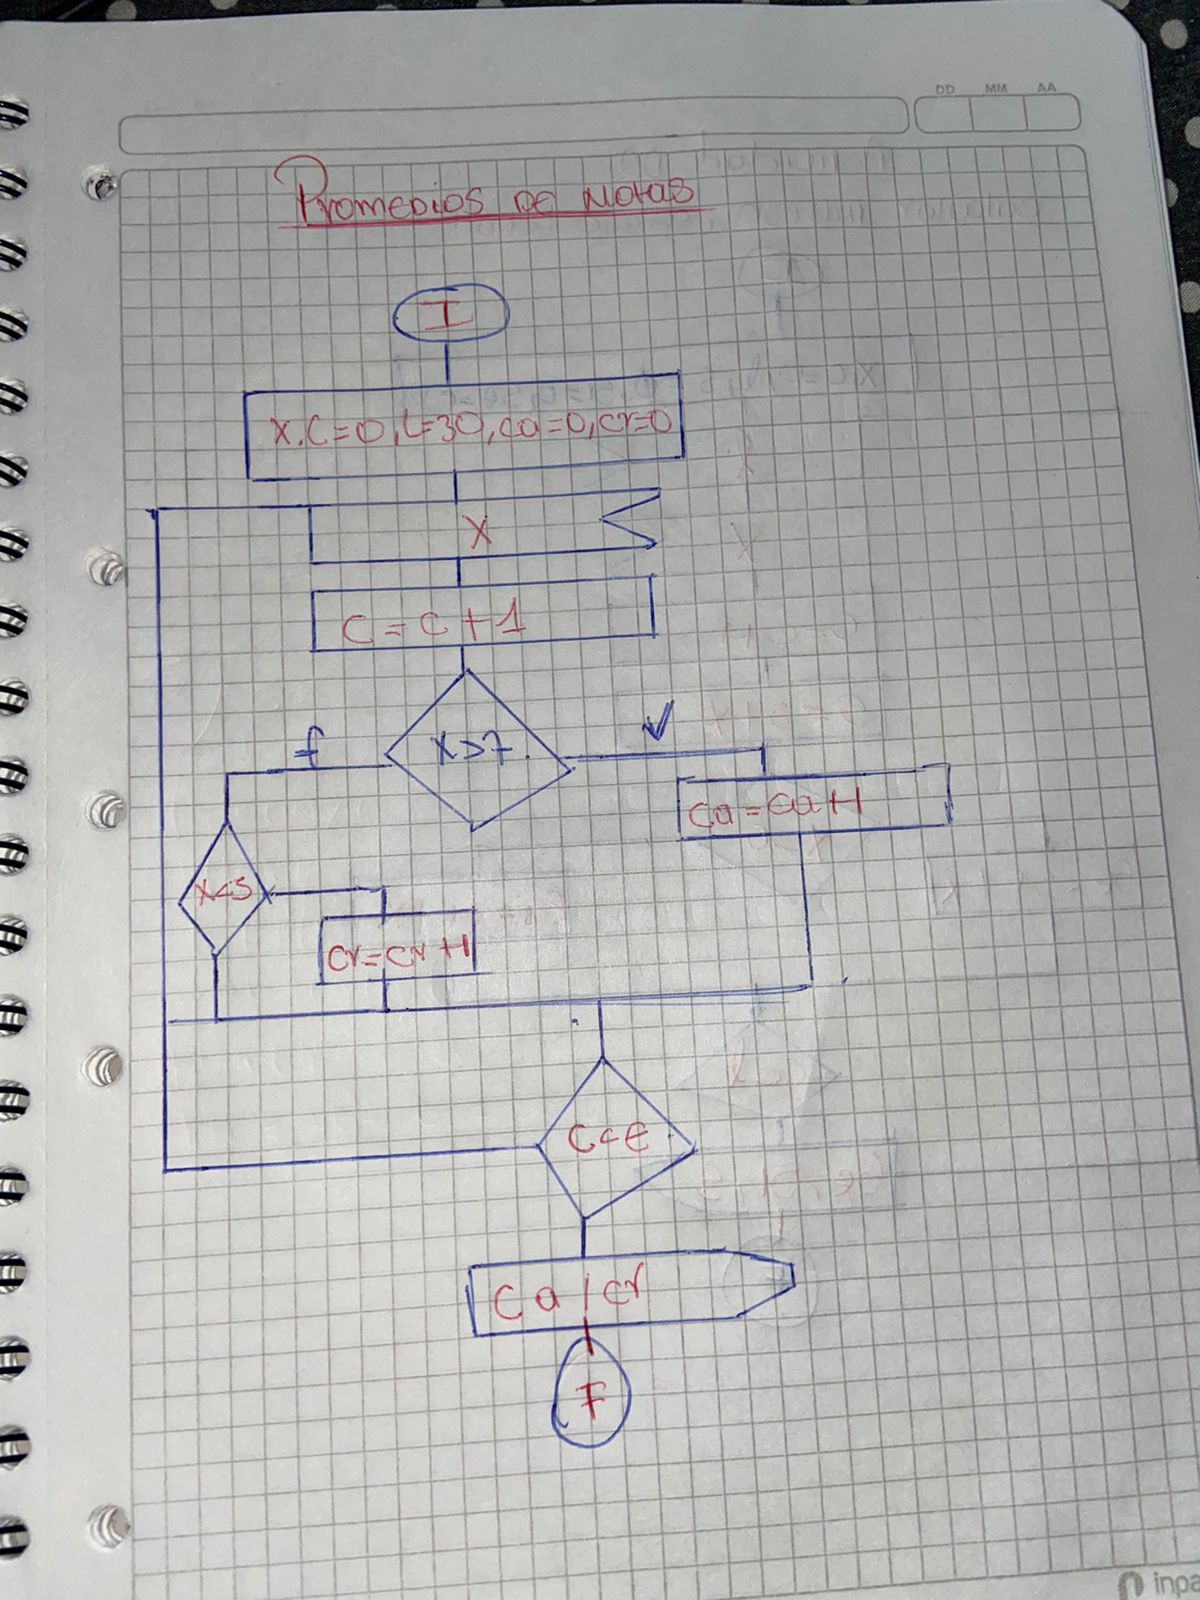 DD MM AA
Promedios de Notas
I
X.C=0, L=30, ca=0, cr=0
X
C=C+1
f
X>7.
ca=ca+1
X<5
cr=cr+1
C<E
Ca / cr
F
inpa